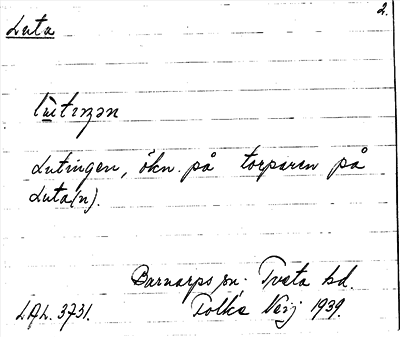 2.
Luta
lùtɪŋən
Lutingen, ökn. på torparen på
Luta(n).
Barnarps sn. Tveta hd.
LAL. 3731. Folke Neij 1939.